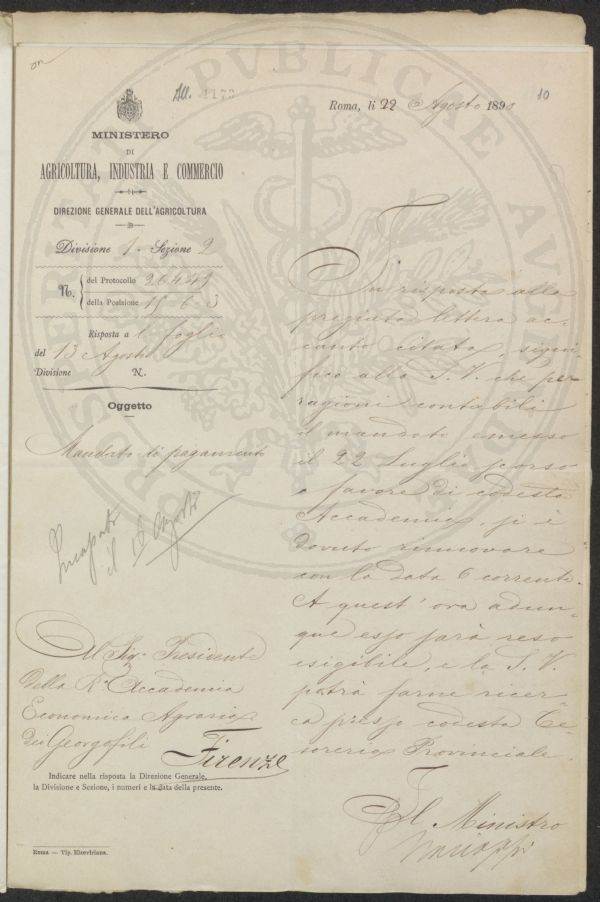 on
All. 1173
Roma, li 22 Agosto 1890
10
MINISTERO
DI
AGRICOLTURA, INDUSTRIA E COMMERCIO
DIREZIONE GENERALE DELL'AGRICOLTURA
Divisione 1 Sezione 2
N. del Protocollo
della Posizione
Risposta a
del 13 Agosto
Divisione N.
Oggetto
Mandato di pagamento
Incassato
il Agosto
Al Sig. Presidente
della Rª Accademia
Economica Agraria
dei Georgofili
Firenze
Indicare nella risposta la Direzione Generale,
la Divisione e Sezione, i numeri e la data della presente.
Roma — Tip. Elzeviriana.
In risposta alla
pregiata lettera ac-
canto citata, signi-
fico alla S. V. che per
ragioni contabili
il mandato emesso
il 22 Luglio scorso
a favore di codesta
Accademia, si è
dovuto rinnovare
con la data 6 corrente.
A quest'ora adun-
que esso sarà reso
esigibile, e la S. V.
potrà farne ricer-
ca presso codesta Te-
soreria Provinciale.
Il Ministro